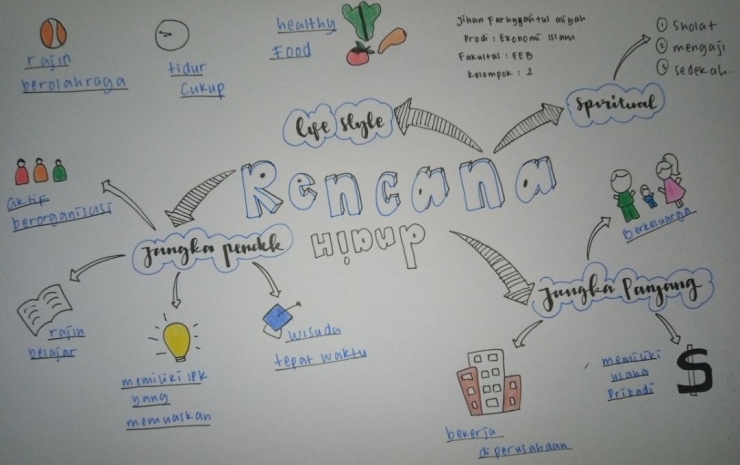 rajin
berolahraga
tidur
cukup
healthy
food
Prodi : Ekonomi Islam
Fakultas : FEB
Kelompok : 2
1 Sholat
2 mengaji
3 sedekah
spiritual
life style
Rencana
Hidup
aktif
berorganisasi
Jangka pendek
rajin
belajar
memiliki IPK
yang
memuaskan
wisuda
tepat waktu
Berkeluarga
Jangka Panjang
bekerja
diperusahaan
memiliki
usaha
Pribadi
$